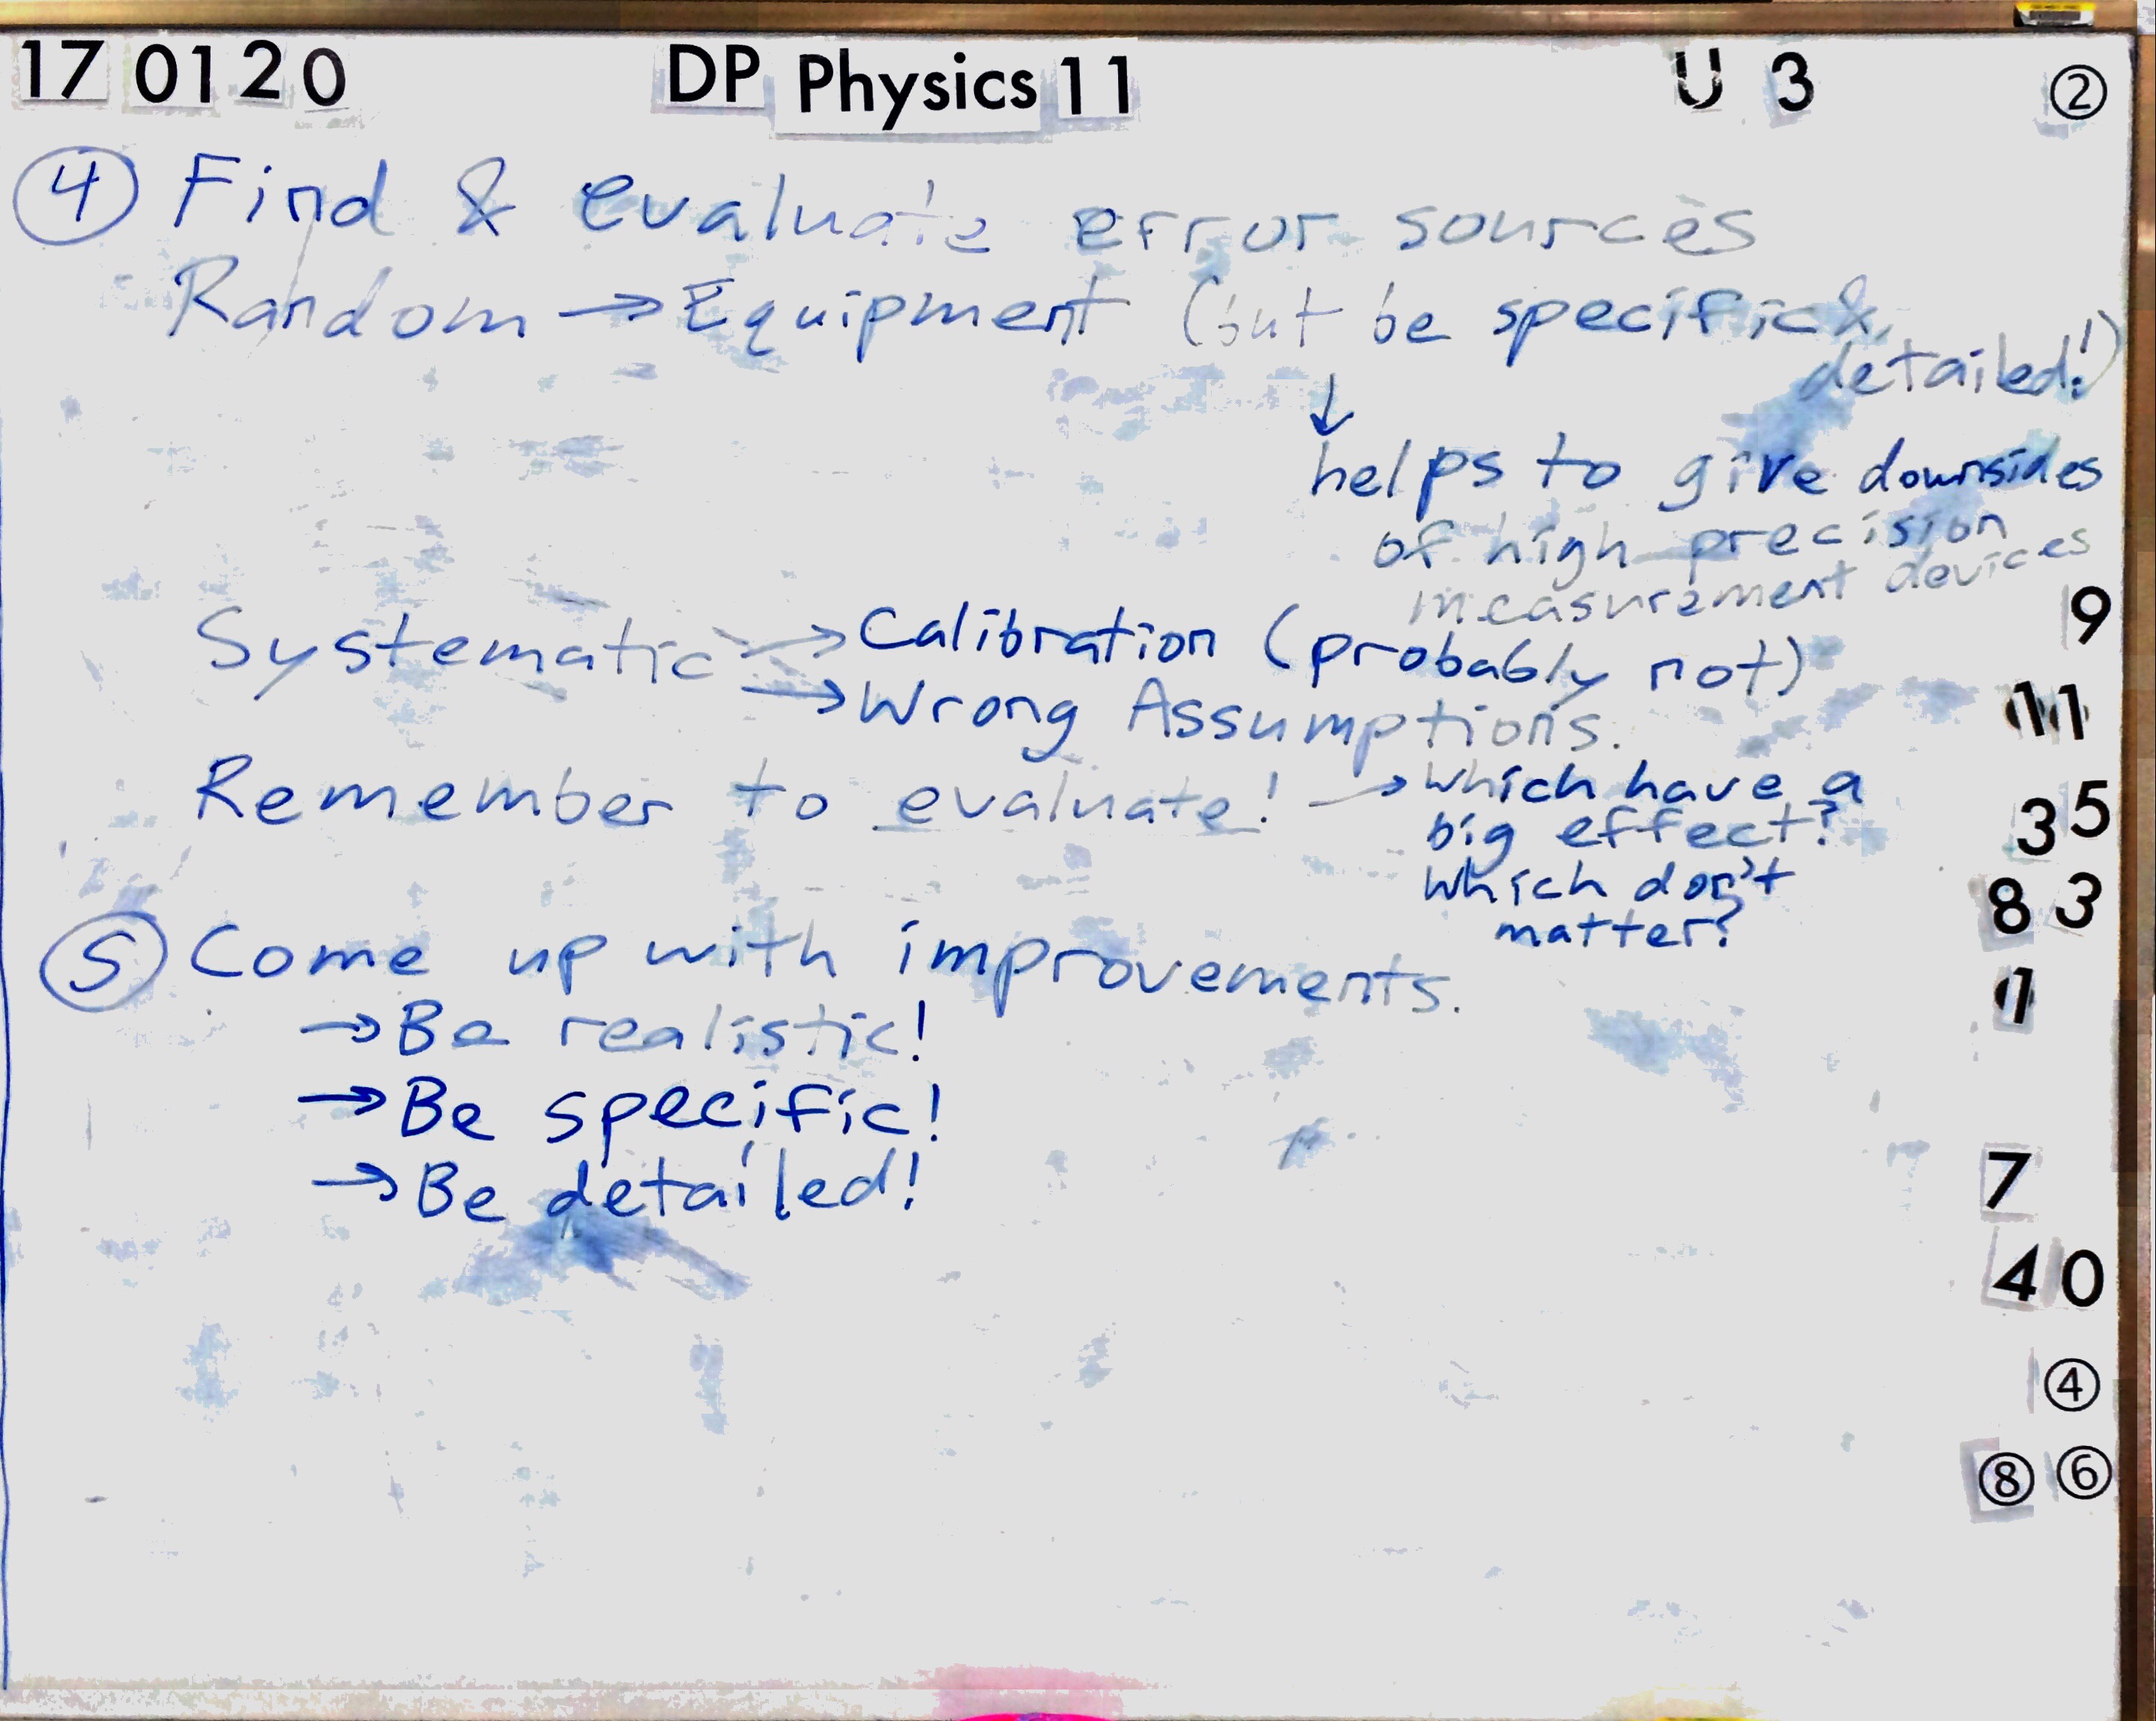 17 0120 DP Physics 11 U 3 ②
④ Find & evaluate error sources
Random → Equipment (but be specific &
detailed!)
↓
helps to give downsides
of high precision
measurement devices
Systematic → Calibration (probably not)
→ Wrong Assumptions.
Remember to evaluate! → which have a
big effect?
which don't
matter?
⑤ Come up with improvements.
→ Be realistic!
→ Be specific!
→ Be detailed!
9
11
35
83
1
7
40
④
⑧ ⑥